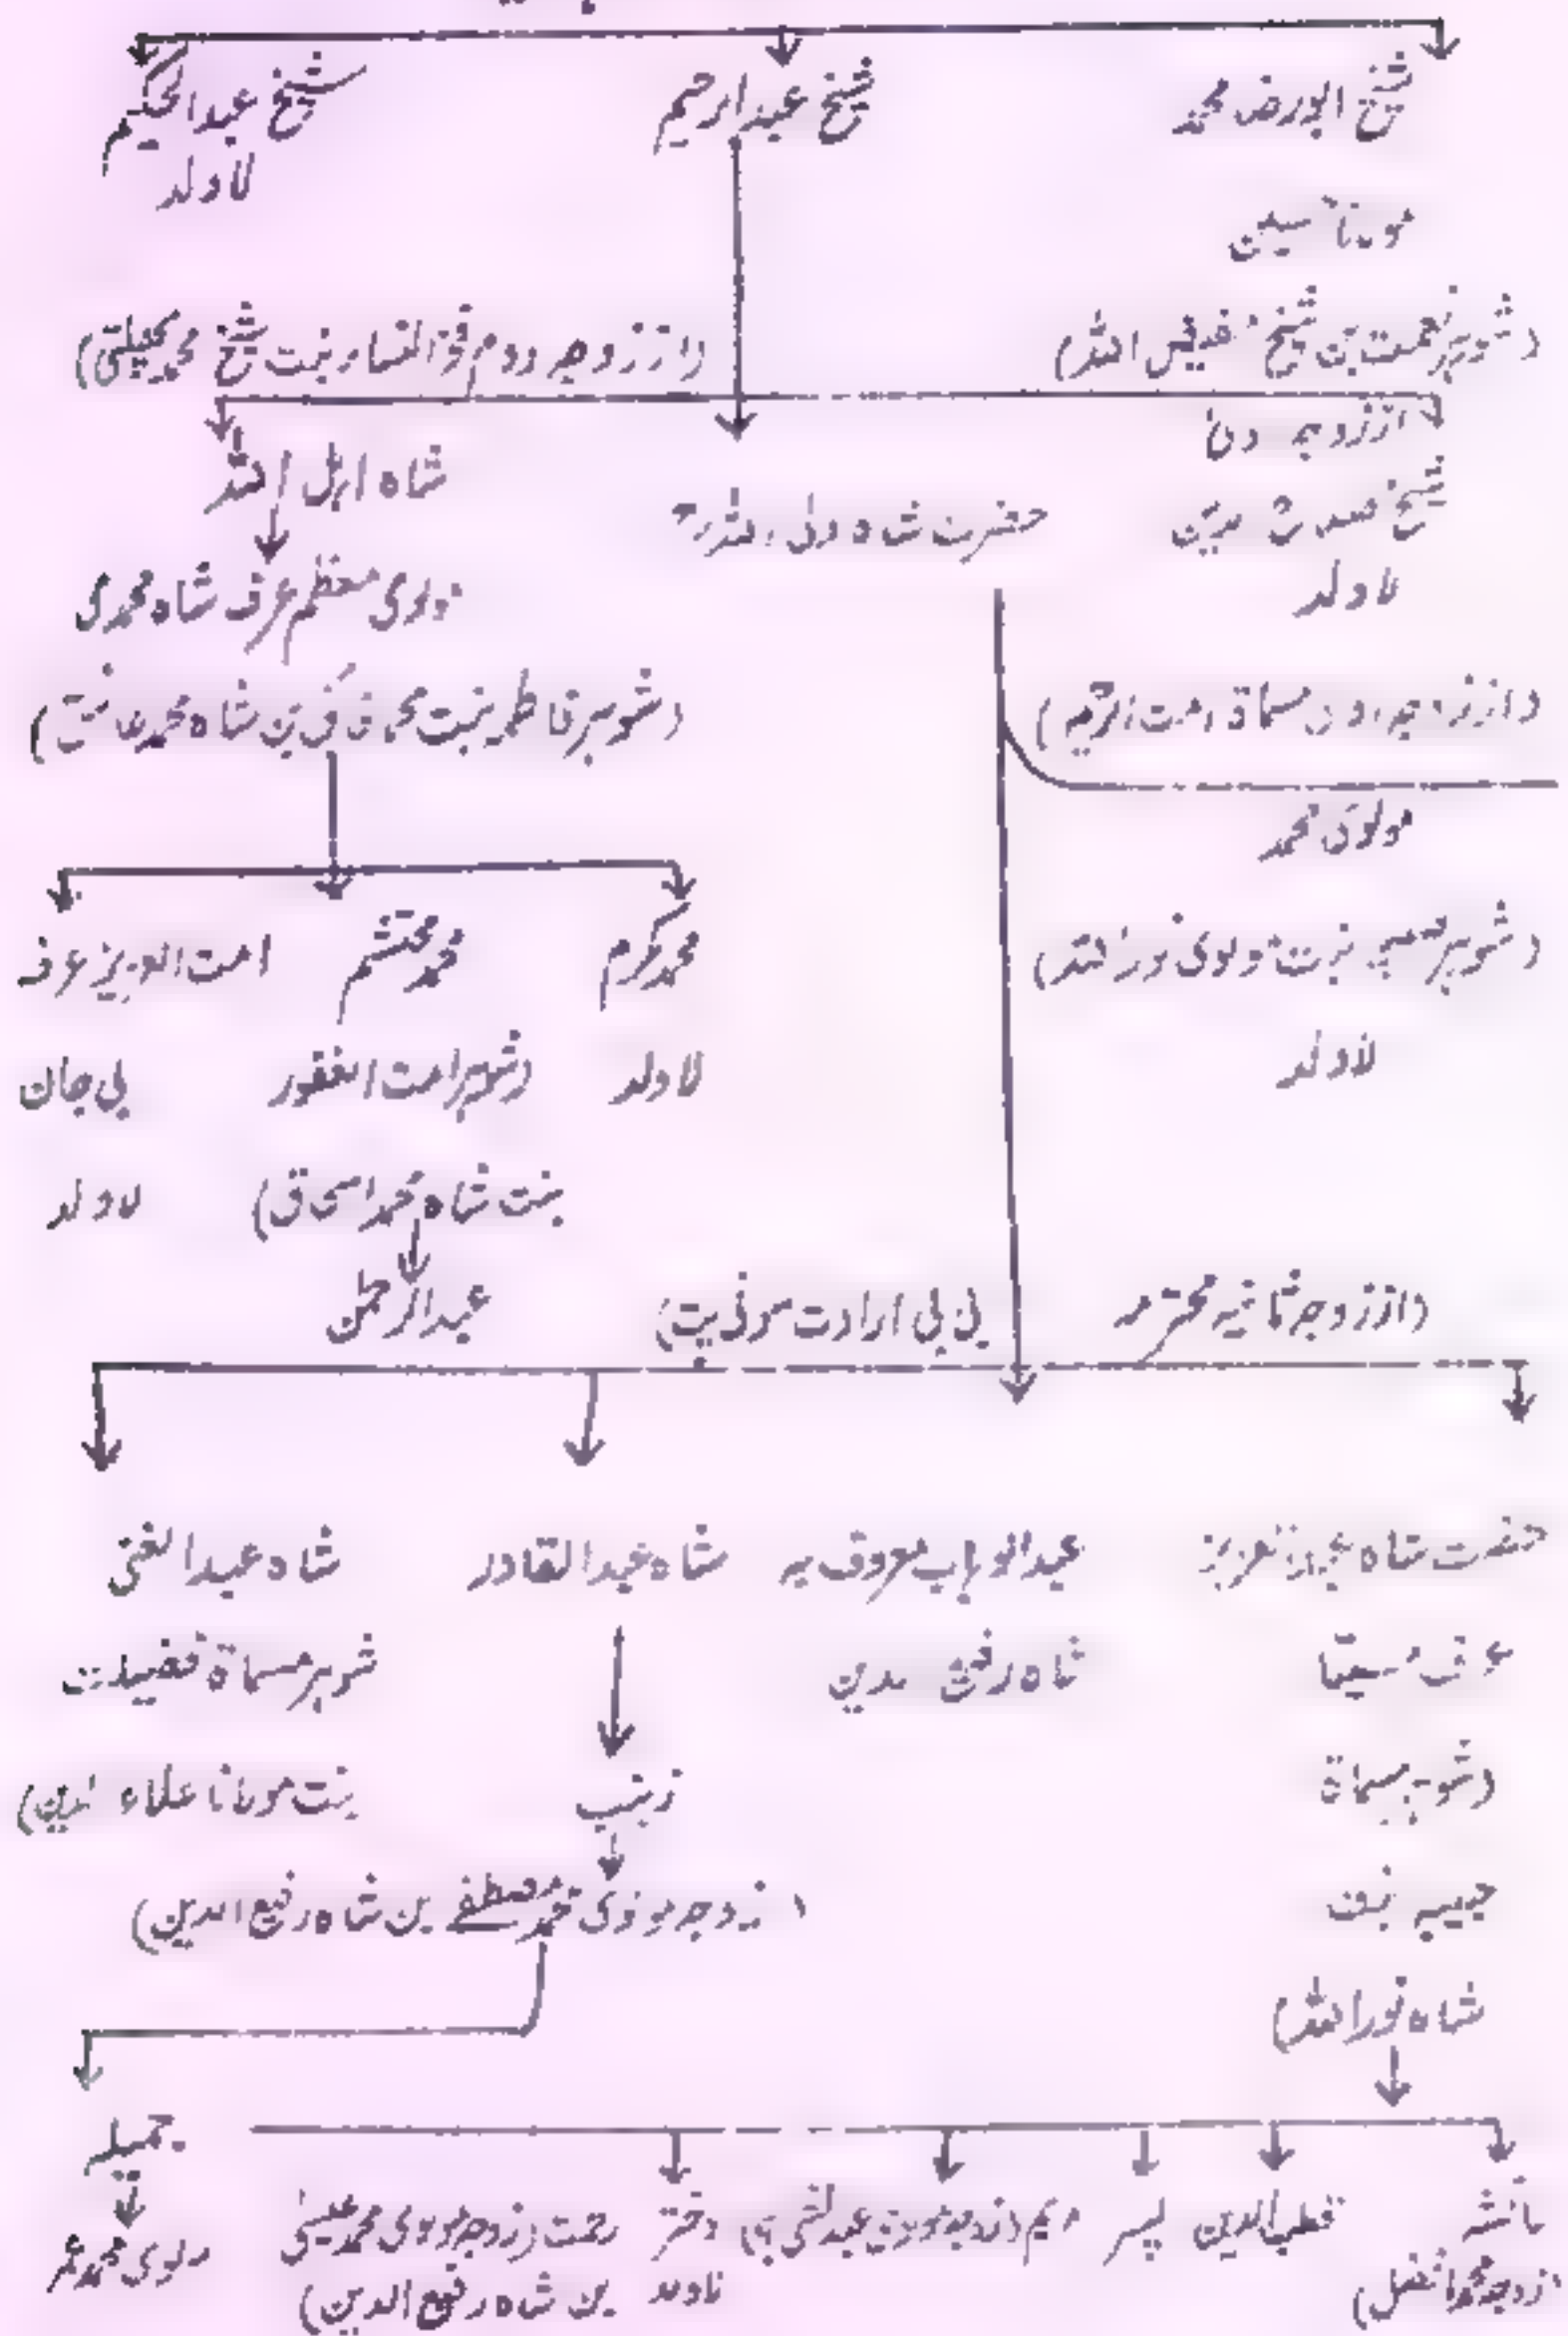 شیخ ابورضا محمد
شیخ عبدالرحیم
شیخ عبدالحکیم
لاولد
(شوہر نعمت بن شیخ
(از زوجہ دوم فخرالنساء بنت شیخ محمد پھلتی)
از زوجہ
شیخ
لاولد
حضرت شاہ ولی اللہ
شاہ اہل اللہ
مولوی معظم عرف شاہ محمدی
(شوہر فاطمہ بنت محمد فائق بن شاہ محمد عاشق)
(از زوجہ اولیٰ مسماۃ امت الرحیم)
مولوی محمد
(شوہر صبیہ بنت مولوی نوراللہ)
لاولد
محمد مکرم
لاولد
محمد محتشم
(شوہر امت الغفور
بنت شاہ محمد اسحاق)
عبدالرحمٰن
امت العزیز عرف
بی جان
لاولد
(از زوجہ ثانیہ محترمہ
بی بی ارادت سونی پت)
حضرت شاہ عبدالعزیز
عرف مسیتا
(شوہر مسماۃ
حبیبہ بنت
شاہ نوراللہ)
عبدالوہاب معروف بہ
شاہ رفیع الدین
شاہ عبدالقادر
زینب
(زوجہ مولوی محمد مصطفے بن شاہ رفیع الدین)
شاہ عبدالغنی
شوہر مسماۃ فضیلت
بنت مولانا علاء الدین)
جمیلہ
مولوی محمد عمر
عائشہ
(زوجہ محمد افضل)
قطب الدین
پسر
مریم (زوجہ مولوی عبدالحئی)
دختر
لاولد
رحمت (زوجہ مولوی محمد عیسیٰ
بن شاہ رفیع الدین)